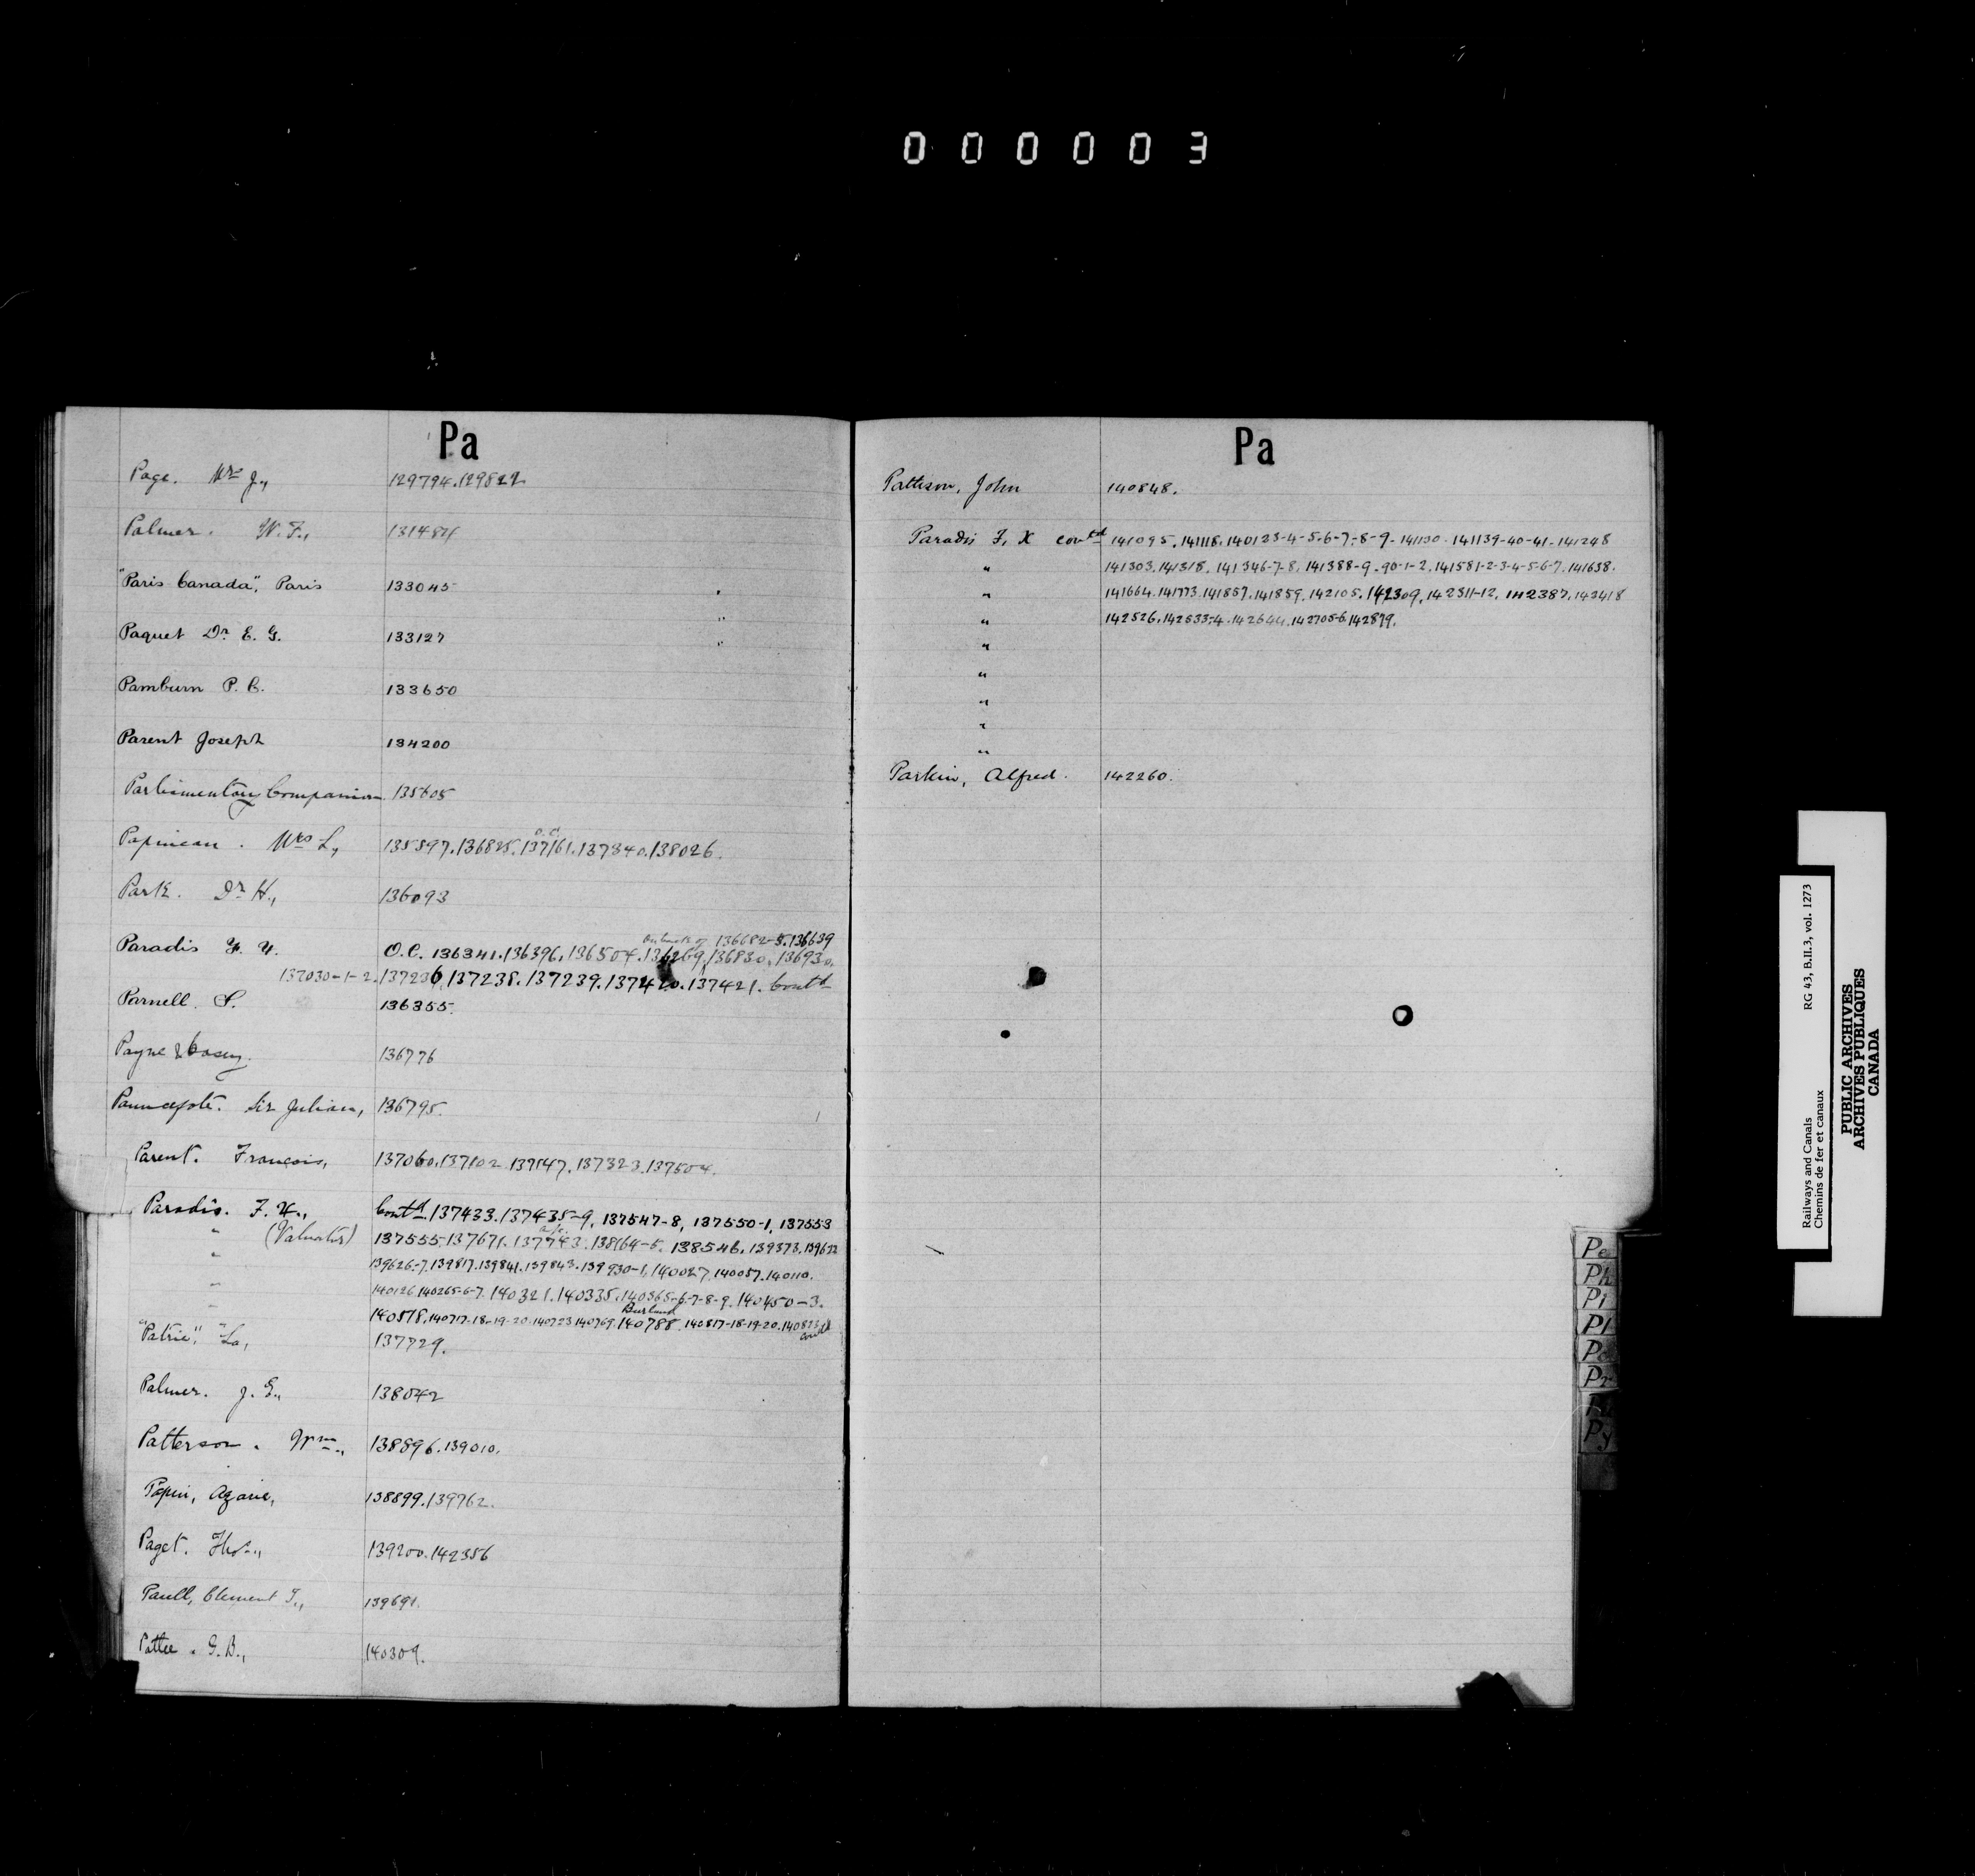 000003
Pa
Page. Mrs J., 129794.129822
Palmer. W. F., 131484
"Paris Canada", Paris 133045
Paquet Dr E. G. 133127
Pamburn P. B. 133650
Parent Joseph 134200
Parliamentary Companion. 135605
O.C.
Papineau. Mrs L, 135597.136825.137161.137340.138026.
Park. Dr H., 136093
136682-5.136639
Paradis F. X. O.C. 136341.136396.136504.136269.136830.136930.
137030-1-2.137236.137238.137239.137420.137421. Contd
Parnell. S. 136355.
Payne & Casey. 136776
Pauncefote. Sir Julian, 136795.
Parent. Francois, 137060.137102.137147.137323.137504.
Paradis. F. X., Contd. 137433.137435-9, 137547-8, 137550-1, 137553
" (Valuator) 137555.137671.137743.138164-5. 138546. 139373.139622
" 139626-7.139817.139841.139843.139930-1.140027.140057.140110.
" 140126.140265-6-7.140321.140335.140365-6-7-8-9.140450-3.
Burland
" 140578.140717-18-19-20.140723.140769.140788.140817-18-19-20.140823 contd
"Patrie", "La, 137729.
Palmer. J. E., 138042
Patterson. Wm., 138896.139010.
Papin, Azarie, 138899.139762.
Paget. Thos., 139200.142356
Paull, Clement T., 139691.
Pattee. G. B., 140309.
Pa
Pattison, John 140848.
Paradis F. X contd 141095.141118.140123-4-5-6-7-8-9-141130.141139-40-41-141248
" 141303.141318.141346-7-8.141388-9-90-1-2.141581-2-3-4-5-6-7.141638.
" 141664.141773.141857.141859.142105.142309.142311-12.142387.142418
" 142526.142533-4.142644.142705-6.142879.
"
"
"
"
"
Parkin, Alfred. 142260.
Pe
Ph
Pi
Pl
Po
Pr
Py
Railways and Canals RG 43, B.II.3, vol. 1273
Chemins de fer et canaux
PUBLIC ARCHIVES
ARCHIVES PUBLIQUES
CANADA